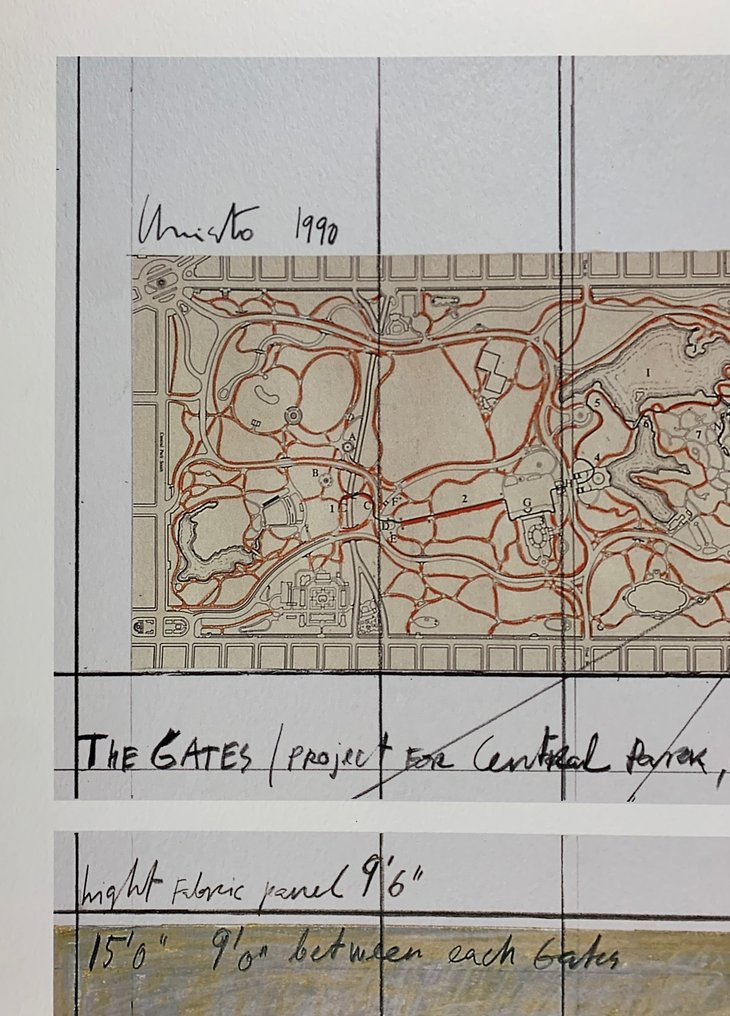 Christo 1990
Central Park South
1
5
6
7
4
A
B
2
G
H
1
C
F
D
E
THE GATES / PROJECT FOR CENTRAL PARK,
hight FABRIC panel 9'6"
15'0" 9'0" between each Gates